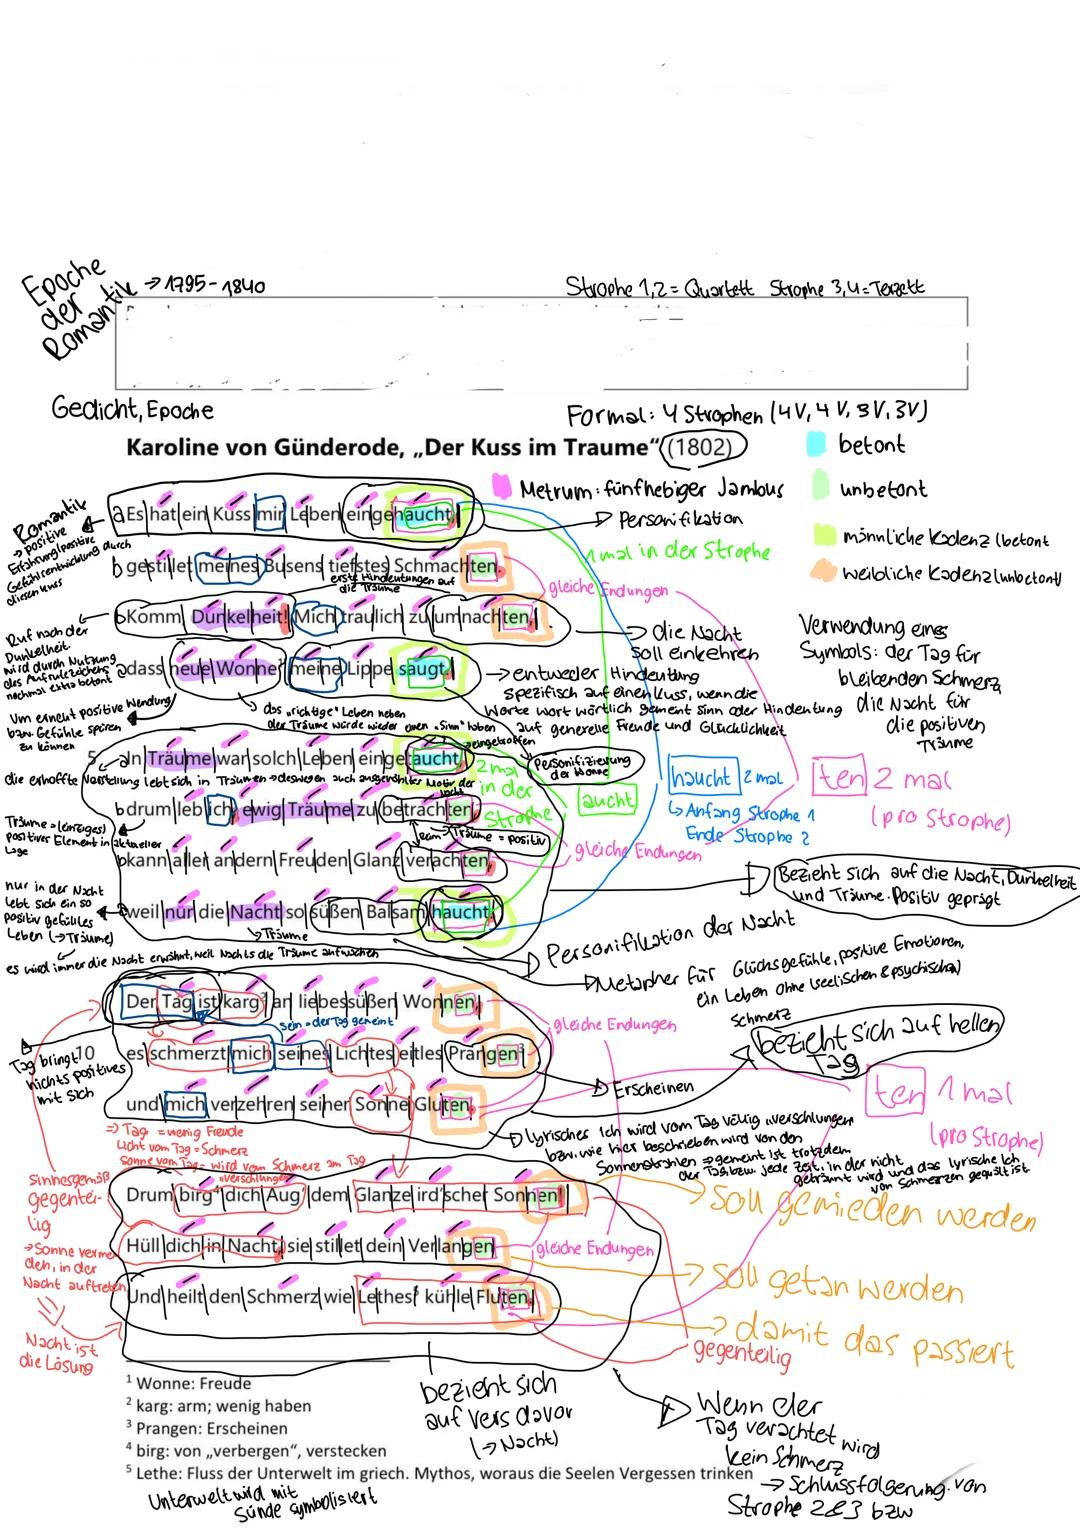 Epoche
der
Romantik
→ 1795 - 1840
Strophe 1,2 = Quartett Strophe 3,4 = Terzett
Gedicht, Epoche
Formal: 4 Strophen (4V, 4V, 3V, 3V)
Karoline von Günderode, „Der Kuss im Traume“ (1802)
betont
Metrum: fünfhebiger Jambus
unbetont
männliche Kadenz (betont
weibliche Kadenz (unbetont)
Romantik
→ positive
Erfahrung/positive
Gefühlsentwicklung durch
diesen Kuss
a Es hat ein Kuss mir Leben eingehaucht,
→ Personifikation
1 mal in der Strophe
b gestillet meines Busens tiefstes Schmachten.
erste Hindeutungen auf
die Träume
gleiche Endungen
Ruf nach der
Dunkelheit
wird durch Nutzung
des Aufrufezeichens
nochmal extra betont
b Komm, Dunkelheit! Mich traulich zu umnachten,
→ die Nacht
soll einkehren
Verwendung eines
Symbols: der Tag für
bleibenden Schmerz
die Nacht für
die positiven
Träume
a dass neue Wonne¹ meine Lippe saugt.
→ entweder Hindeutung
spezifisch auf einen Kuss, wenn die
Worte wort wörtlich gemeint sind oder Hindeutung
auf generelle Freude und Glücklichkeit
Um erneut positive Wendung
bzw. Gefühle spüren
zu können
das „richtige“ Leben neben
der Träume würde wieder einen „Sinn“ haben
5 a In Träume war solch Leben eingetaucht,
→ eingetroffen
Personifizierung
der Wonne
die erhoffte Vorstellung lebt sich in Träumen → deswegen auch ausgewählter Motiv der
Nacht
2 mal
in der
Strophe
aucht
haucht 2 mal
↳ Anfang Strophe 1
Ende Strophe 2
ten 2 mal
(pro Strophe)
b drum leb ich, ewig Träume zu betrachten,
Träume = (einziges)
positiver Element in aktueller
Lage
Träume = positiv
b kann aller andern Freuden Glanz verachten,
gleiche Endungen
→ Bezieht sich auf die Nacht, Dunkelheit
und Träume. Positiv geprägt
nur in der Nacht
lebt sich ein so
positiv gefülltes
Leben (→ Träume)
weil nur die Nacht so süßen Balsam haucht.
→ Träume
es wird immer die Nacht erwähnt, weil Nachts die Träume auftauchen
→ Personifikation der Nacht
→ Metapher für Glücksgefühle, positive Emotionen,
ein Leben ohne seelischen & psychischen
schmerz
Der Tag ist karg² an liebessüßen Wonnen,
sein = der Tag gemeint
gleiche Endungen
bezieht sich auf hellen
Tag
Tag bringt
nichts positives
mit sich
10 es schmerzt mich seines Lichtes eitles Prangen³
→ Erscheinen
und mich verzehren seiner Sonne Gluten.
ten 1 mal
(pro Strophe)
⇒ Tag = wenig Freude
Licht vom Tag = Schmerz
Sonne vom Tag = wird vom Schmerz am Tag
„verschlungen“
→ lyrisches Ich wird vom Tag völlig „verschlungen
bzw. wie hier beschrieben wird von den
Sonnenstrahlen ⇒ gemeint ist trotzdem
der Tag bzw. jede Zeit, in der nicht
geträumt wird und das lyrische Ich
von Schmerzen gequält ist
sinnesgemäß
gegentei-
lig
Drum birg⁴ dich Aug' dem Glanze ird'scher Sonnen!
→ soll gemieden werden
→ Sonne verme
den, in der
Nacht auftreten
Hüll dich in Nacht, sie stillet dein Verlangen
gleiche Endungen
→ soll getan werden
Und heilt den Schmerz, wie Lethes⁵ kühle Fluten.
→ damit das passiert
Nacht ist
die Lösung
gegenteilig
¹ Wonne: Freude
² karg: arm; wenig haben
³ Prangen: Erscheinen
⁴ birg: von „verbergen“, verstecken
⁵ Lethe: Fluss der Unterwelt im griech. Mythos, woraus die Seelen Vergessen trinken
bezieht sich
auf vers davor
(→ Nacht)
Unterwelt wird mit
Sünde symbolisiert
→ Wenn der
Tag verachtet wird
kein Schmerz
→ Schlussfolgerung von
Strophe 2 & 3 bzw